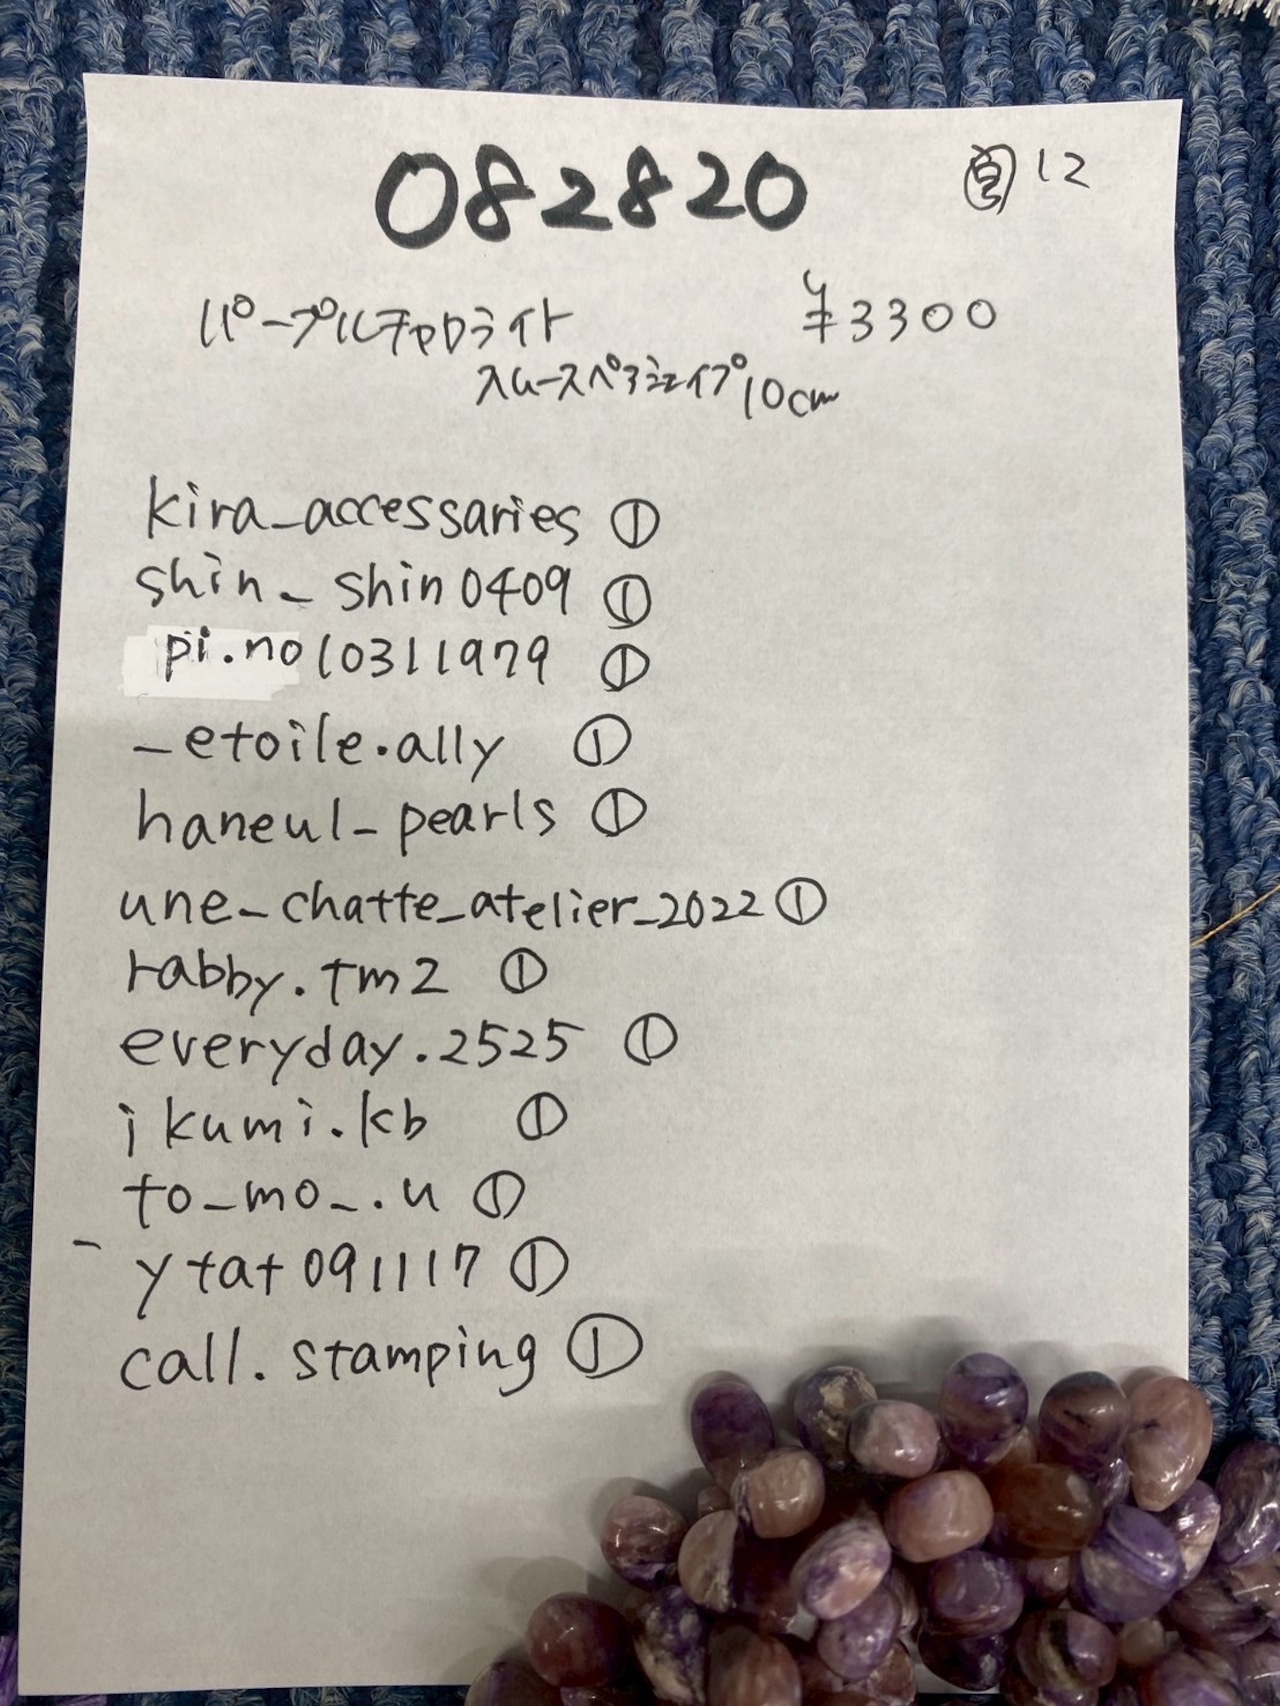 082820
12
パープルチャロライト ¥3300
スムースペアシェイプ10cm
kira_accessaries ①
shin_shin0409 ①
pi.no10311979 ①
_etoile.ally ①
haneul_pearls ①
une_chatte_atelier_2022 ①
rabby.tm2 ①
everyday.2525 ①
ikumi.kb ①
to_mo_.u ①
_ytat091117 ①
call.stamping ①